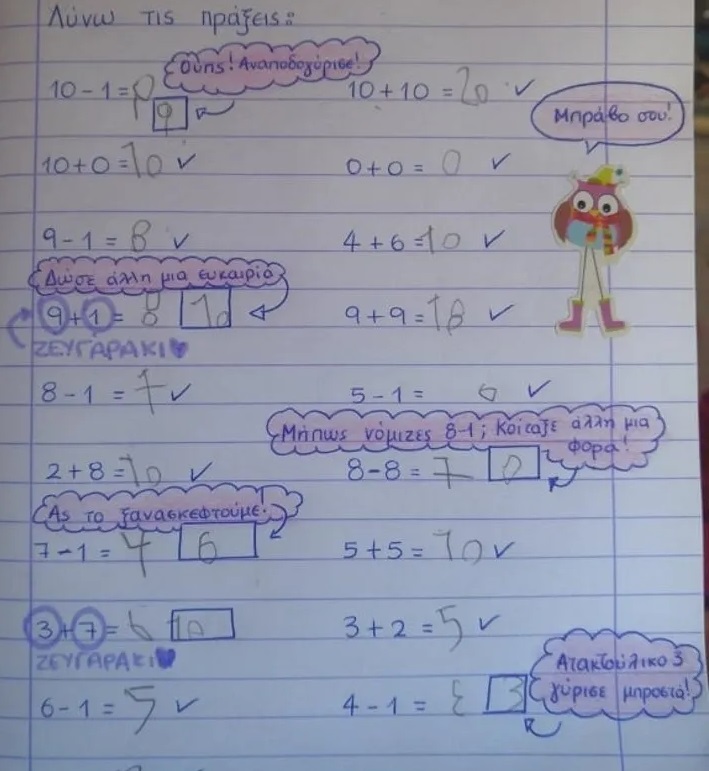 Λύνω τις πράξεις:
Ούπς! Αναποδογύρισε!
10-1=9 9
10+10=20 ✓
Μπράβο σου!
10+0=10 ✓
0+0=0 ✓
9-1=8 ✓
4+6=10 ✓
Δώσε άλλη μια ευκαιρία
9+1=8 10
9+9=18 ✓
ΖΕΥΓΑΡΑΚΙ♥
8-1=7 ✓
5-1= ✓
Μήπως νόμιζες 8-1; Κοίταξε άλλη μια
φορά!
2+8=10 ✓
8-8=7 0
Ας το ξανασκεφτούμε.
7-1=4 6
5+5=10 ✓
3+7=6 10
3+2=5 ✓
ΖΕΥΓΑΡΑΚΙ♥
Ατακτούλικο 3
γύρισε μπροστά!
6-1=5 ✓
4-1=ε 3